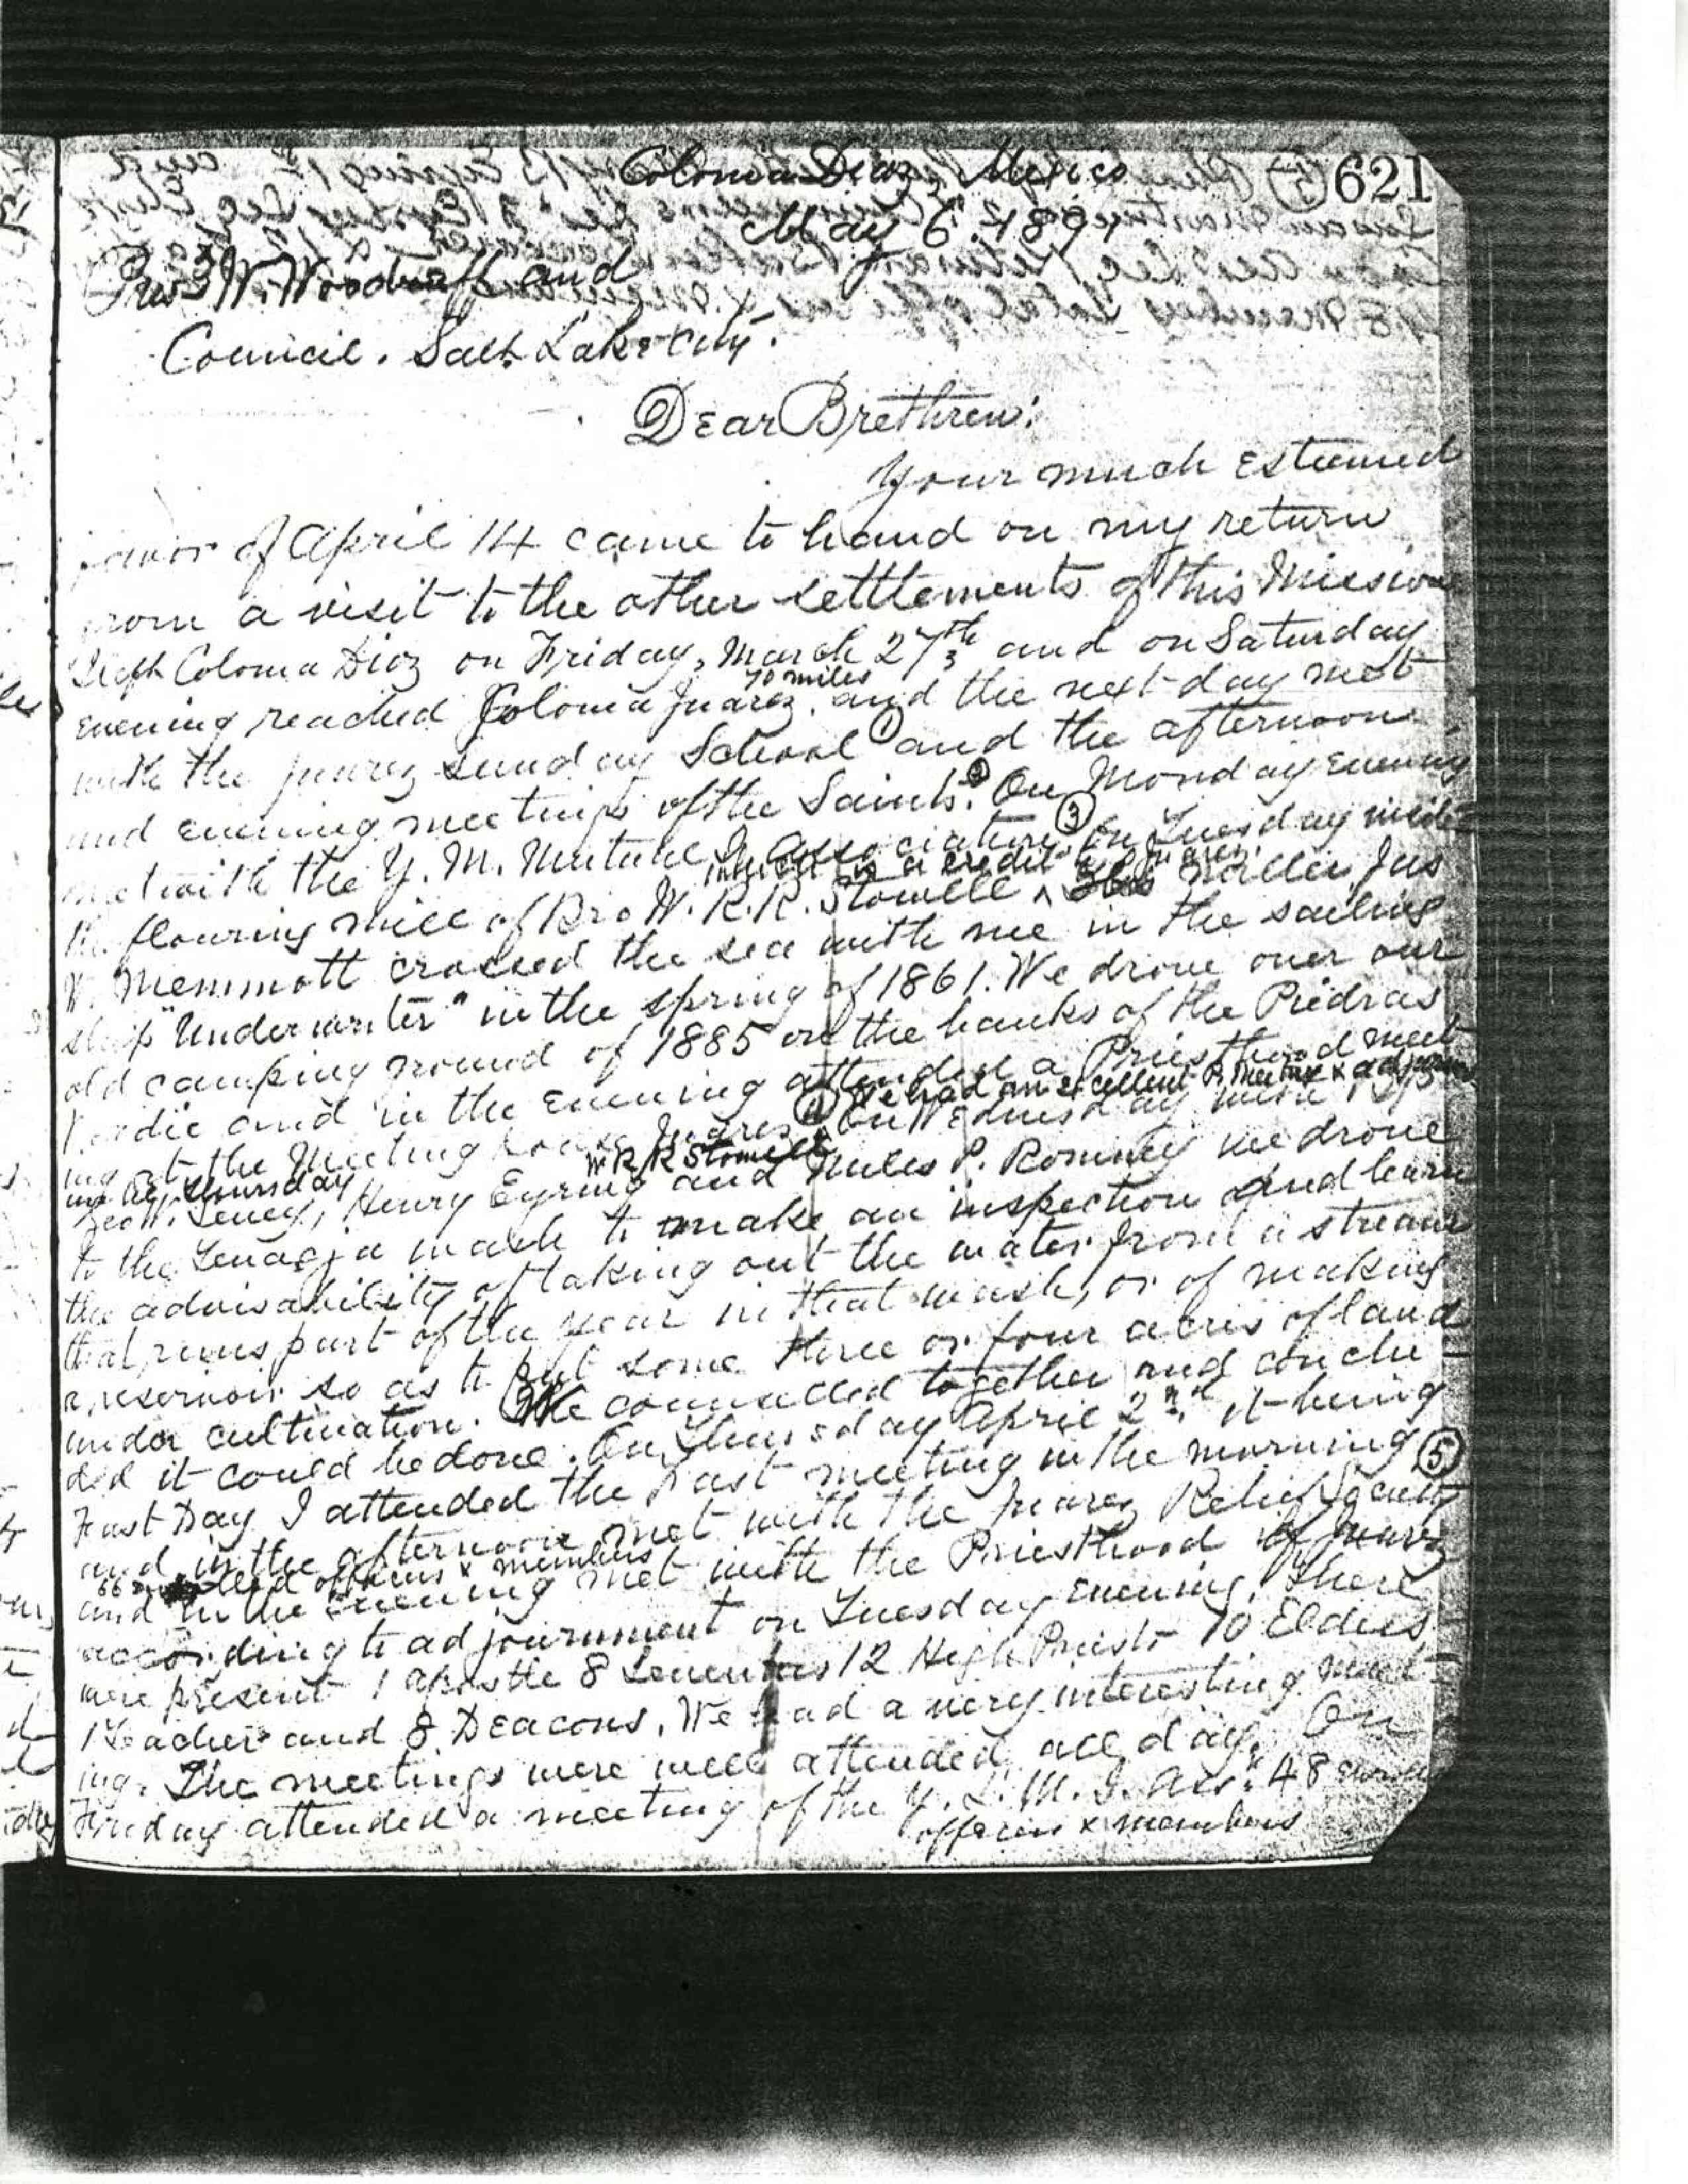 621
Colonia Diaz, Mexico
May 6th 1891
Prest W. Woodruff and
Council. Salt Lake City.
Dear Brethren:
Your much esteemed
favor of April 14 came to hand on my return
from a visit to the other settlements of this Mission
Left Colonia Diaz on Friday, March 27th and on Saturday
70 miles
evening reached Colonia Juarez. and the next day met
with the Juarez Sunday School ① and the afternoon
and evening meetings of the Saints. ② On Monday evening
met with the Y. M. Mutual I. Association ③ On Tuesday
which is a credit to Juarez.
the flouring mill of Bro W. R. R. Stowell ^ miller Jas
W. Memmott crossed the sea with me in the sailing
ship "Underwriter" in the spring of 1861. We drove over our
old camping ground of 1885 on the banks of the Piedras
Verdie and in the evening attended a Priesthood meet
We had an excellent P. Meeting & adjourned
ing at the Meeting house Juarez ④ ^ On Wednesday with
till Thursday
W R R Stowell
Geo. Sevey, Henry Eyring and Miles P. Romney we drove
to the wash to make an inspection and learn
the advisability of taking out the water from a stream
that runs part of the year in that wash, or of making
a reservoir so as to put some three or four acres of land
under cultivation. We councilled together and conclu-
ded it could be done. On Thursday April 2nd it being
Fast Day I attended the Fast meeting in the morning ⑤
and in the afternoon met with the Juarez Relief Society
66 officers & members
and in the evening met with the Priesthood of Juarez
according to adjournment on Tuesday evening. There
were present 1 Apostle 8 Seventies 12 High Priests 10 Elders
1 Teacher and 8 Deacons. We had a very interesting meet-
ing. The meetings were well attended all day. On
Friday attended a meeting of the Y. L. M. I. Assn 48
officers & members